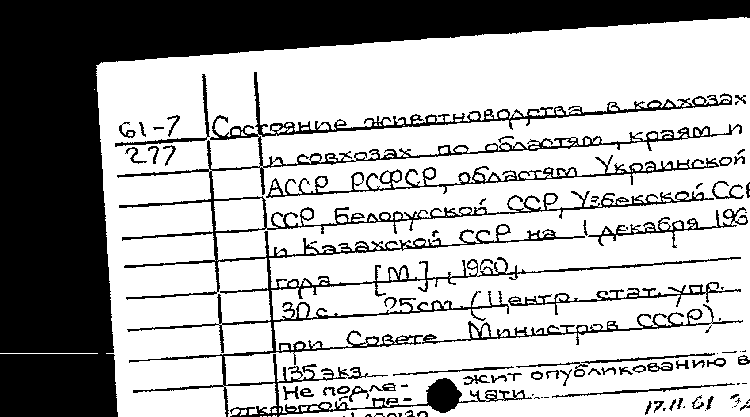 61-7 Состояние животноводства в колхозах
277 и совхозах по областям, краям и
АССР РСФСР, областям Украинской
ССР, Белорусской ССР, Узбекской ССР
и Казахской ССР на 1 декабря 196
года. [М.], [1960].
30 с. 25 см. (Центр. стат. упр.
при Совете Министров СССР).
135 экз.
Не подле- жит опубликованию в
открытой пе- чати.
17.11.61